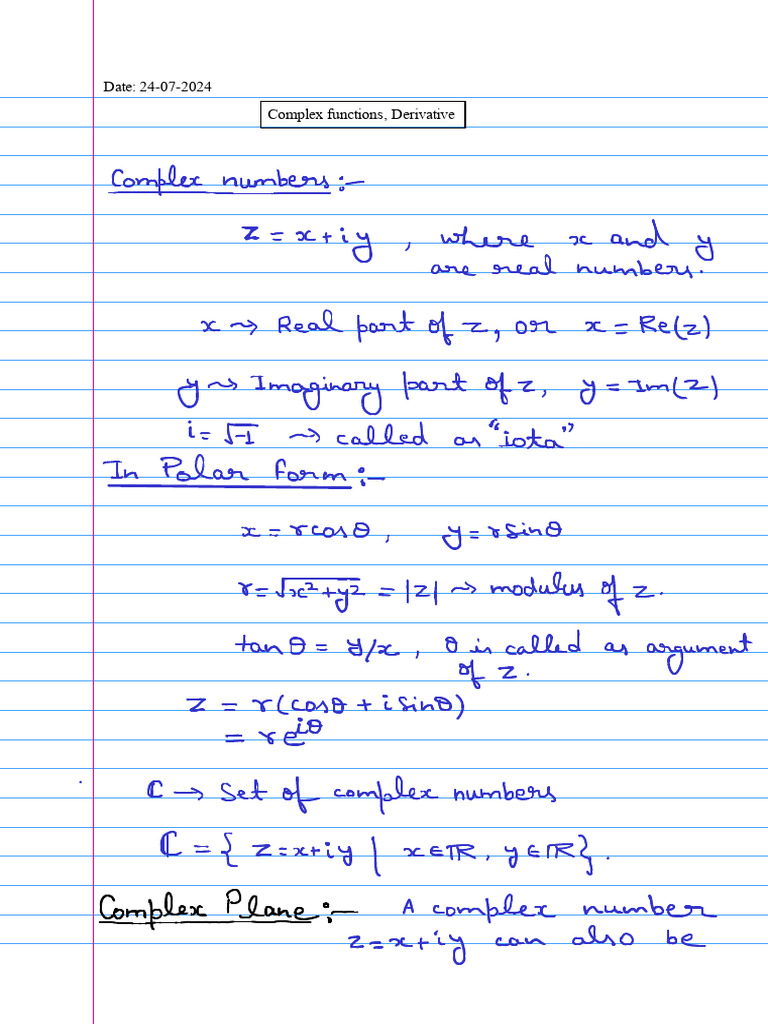 Date: 24-07-2024
Complex functions, Derivative
Complex numbers:-
z = x+iy , where x and y
are real numbers.
x ⇝ Real part of z, or x = Re(z)
y ⇝ Imaginary part of z, y = Im(z)
i = √-1 ⇝ called as "iota"
In Polar form:-
x = rcosθ, y = rsinθ
r = √x²+y² = |z| ⇝ modulus of z.
tanθ = y/x, θ is called as argument
of z.
z = r(cosθ + i sinθ)
= re^iθ
ℂ → Set of complex numbers
ℂ = { z=x+iy | x∈ℝ, y∈ℝ}.
Complex Plane:- A complex number
z=x+iy can also be